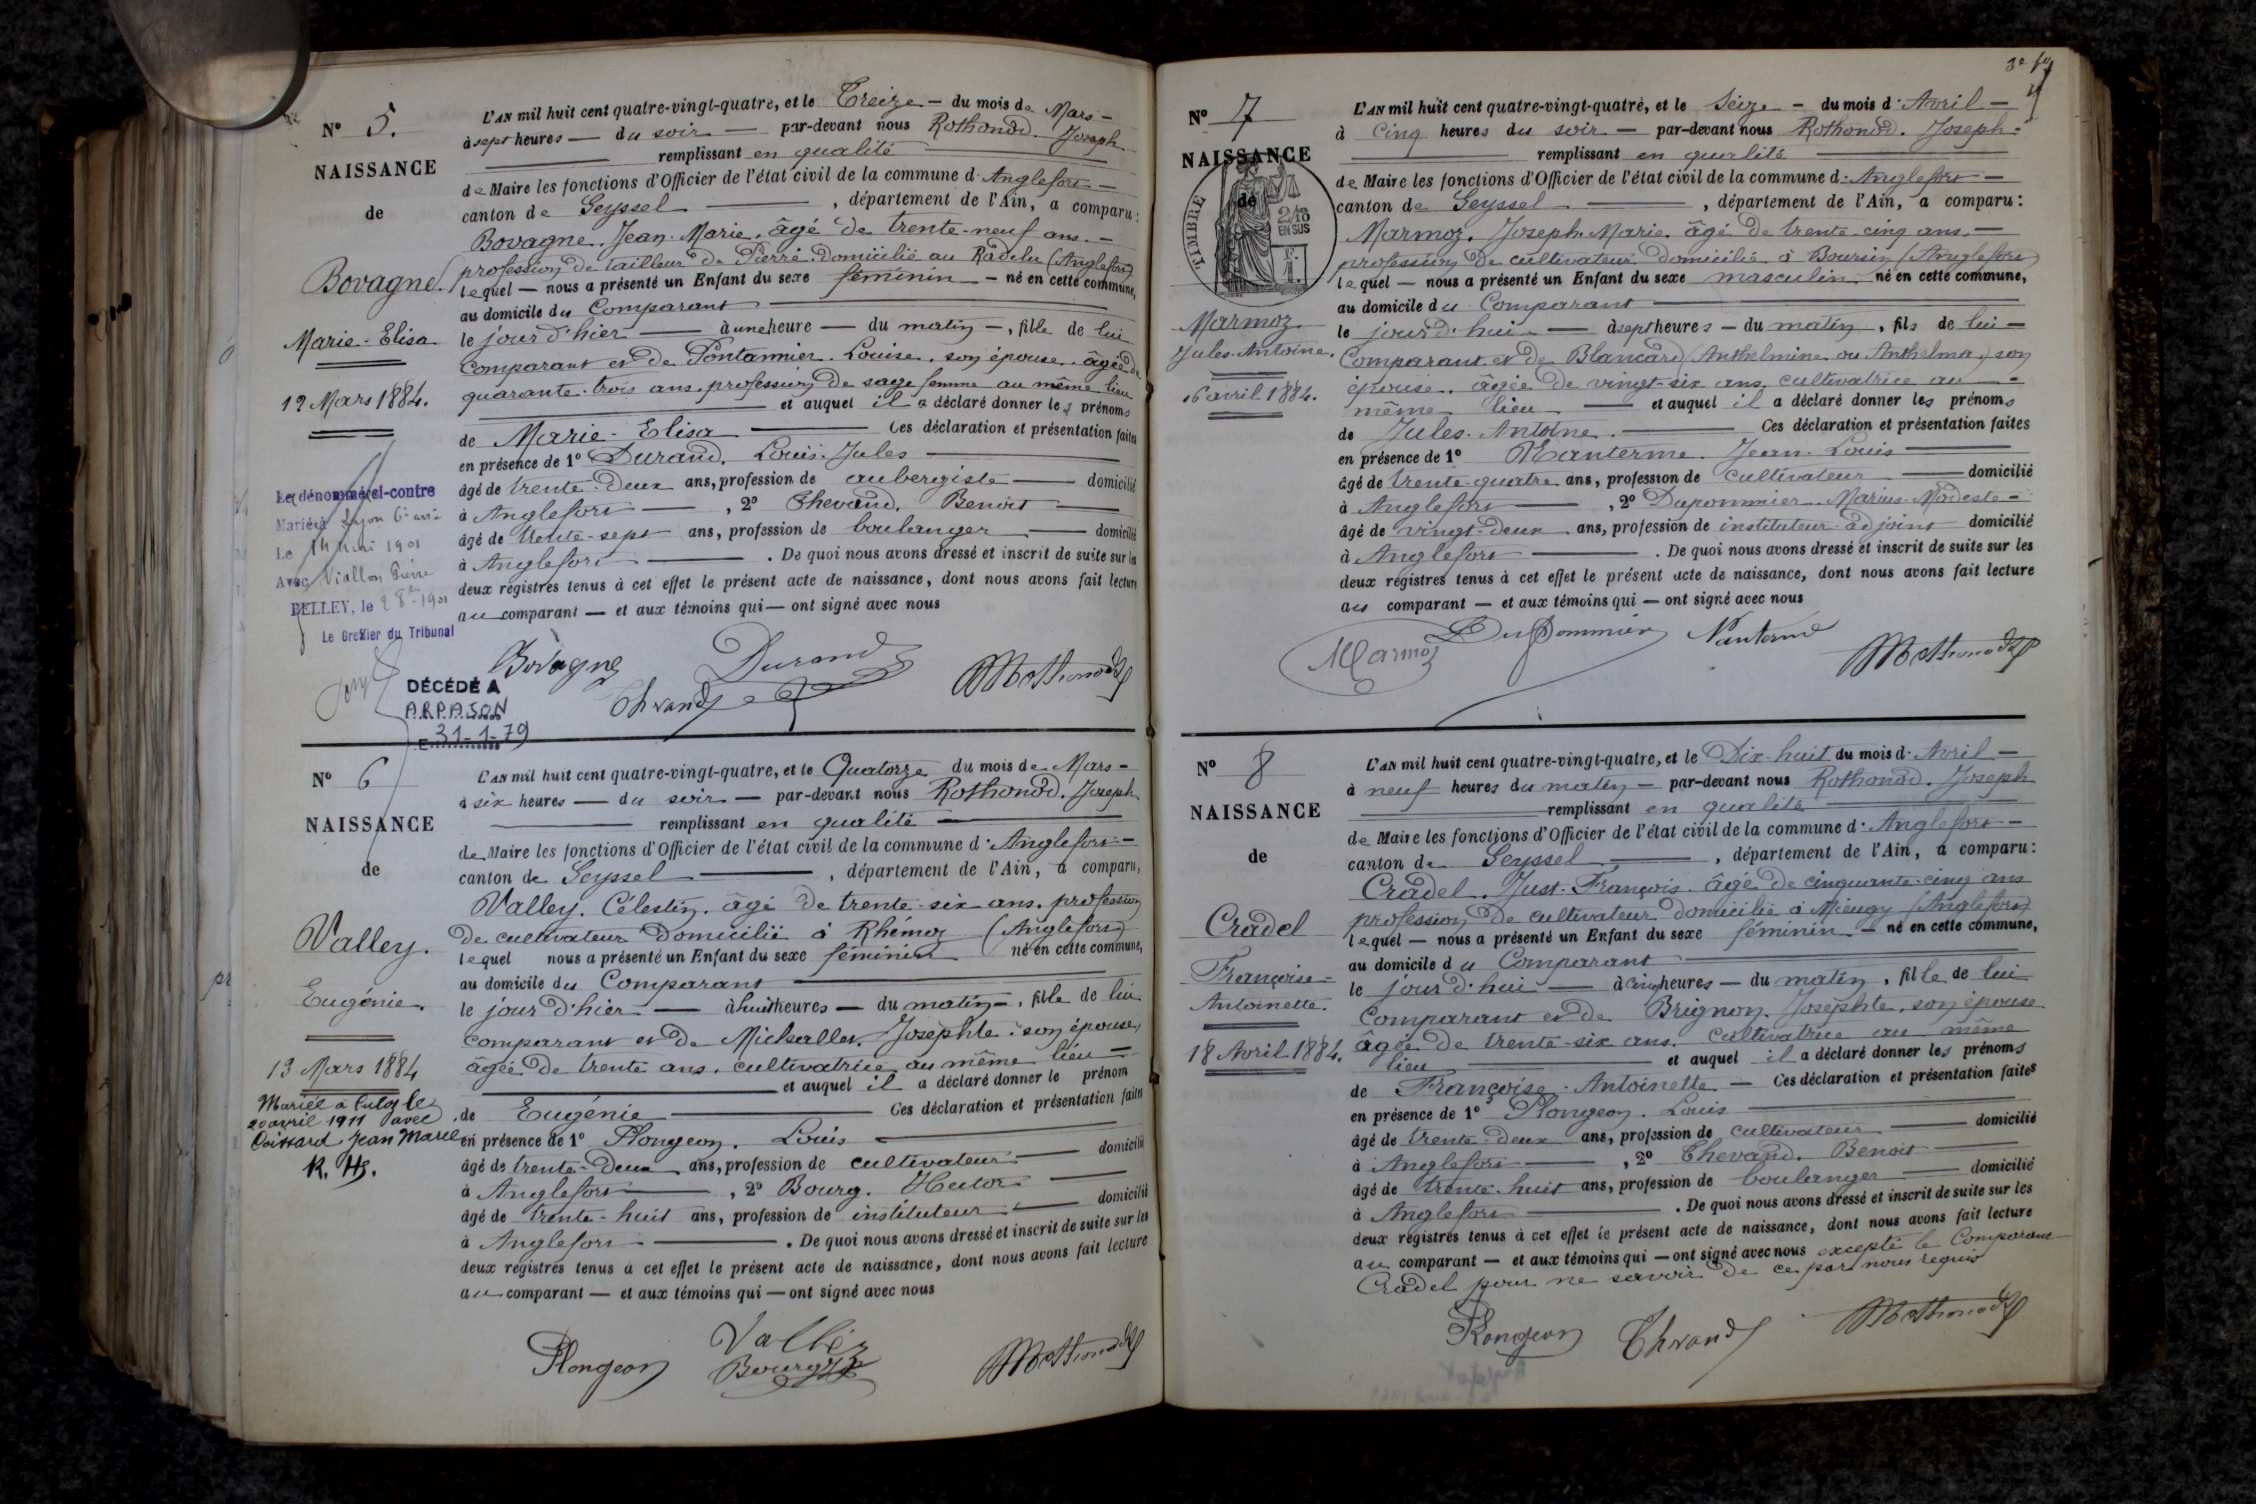 N° 5.
NAISSANCE
de
Bovagne.
Marie-Elisa
12 Mars 1884.
Le dénommé ci-contre
Marié à Lyon 6e
Le 14 mai 1901
Avec Viallon Pierre
BELLEY, le 1901
Le Greffier du Tribunal
DÉCÉDÉ A
ARPAJON
31-1-79
L'AN mil huit cent quatre-vingt-quatre, et le Treize — du mois de Mars —
à sept heures — du soir — par-devant nous Rothonod. Joseph
remplissant en qualité
de Maire les fonctions d'Officier de l'état civil de la commune d'Anglefort —
canton de Seyssel — , département de l'Ain, a comparu:
Bovagne. Jean-Marie. âgé de trente-neuf ans. —
profession de tailleur de Pierre. domicilié au (Anglefort)
lequel — nous a présenté un Enfant du sexe féminin — né en cette commune,
au domicile du Comparant
le jour d'hier — à une heure — du matin —, fille de lui
comparant et de Pontannier. Louise. son épouse. âgée de
quarante-trois ans. profession de sage femme au même lieu
— et auquel il a déclaré donner les prénoms
de Marie-Elisa — Ces déclaration et présentation faites
en présence de 1° Durand. Louis-Jules
âgé de trente-deux ans, profession de aubergiste — domicilié
à Anglefort — , 2° Chevand. Benoit
âgé de trente-sept ans, profession de boulanger — domicilié
à Anglefort — . De quoi nous avons dressé et inscrit de suite sur les
deux registres tenus à cet effet le présent acte de naissance, dont nous avons fait lecture
au comparant — et aux témoins qui — ont signé avec nous
Bovagne Durand
Chevand Rothonod
N° 6
NAISSANCE
de
Valley.
Eugénie.
13 Mars 1884
Mariée à Culoz le
20 avril 1911 avec
Coissard Jean Marie
L'AN mil huit cent quatre-vingt-quatre, et le Quatorze du mois de Mars —
à six heures — du soir — par-devant nous Rothonod. Joseph
remplissant en qualité
de Maire les fonctions d'Officier de l'état civil de la commune d'Anglefort —
canton de Seyssel — , département de l'Ain, a comparu,
Valley. Célestin. âgé de trente-six ans. profession
de cultivateur domicilié à Rhémoz (Anglefort)
lequel nous a présenté un Enfant du sexe féminin né en cette commune,
au domicile du Comparant
le jour d'hier — à huit heures — du matin —, fille de lui
comparant et de Michallet. Josephte. son épouse,
âgée de trente ans. cultivatrice au même lieu —
— et auquel il a déclaré donner le prénom
de Eugénie — Ces déclaration et présentation faites
en présence de 1° Plongeon. Louis
âgé de trente-deux ans, profession de cultivateur — domicilié
à Anglefort — , 2° Bourg. Hector
âgé de trente-huit ans, profession de instituteur — domicilié
à Anglefort — . De quoi nous avons dressé et inscrit de suite sur les
deux registres tenus à cet effet le présent acte de naissance, dont nous avons fait lecture
au comparant — et aux témoins qui — ont signé avec nous
Plongeon Valley
Bourg Rothonod
N° 7
NAISSANCE
de
TIMBRE
2/10
EN SUS
Marmoz
Jules-Antoine.
16 avril 1884.
L'AN mil huit cent quatre-vingt-quatre, et le Seize — du mois d'Avril —
à Cinq heures du soir — par-devant nous Rothonod. Joseph —
remplissant en qualité
de Maire les fonctions d'Officier de l'état civil de la commune d'Anglefort —
canton de Seyssel — , département de l'Ain, a comparu:
Marmoz. Joseph-Marie. âgé de trente-cinq ans. —
profession de cultivateur domicilié à Boursin (Anglefort)
lequel — nous a présenté un Enfant du sexe masculin né en cette commune,
au domicile du Comparant
le jour d'hui — à sept heures — du matin, fils de lui —
Comparant et de Blancard (Anthelmine ou Anthelma.) son
épouse. âgée de vingt-six ans, cultivatrice au —
même lieu — et auquel il a déclaré donner les prénoms
de Jules-Antoine. — Ces déclaration et présentation faites
en présence de 1° Nanterme. Jean-Louis
âgé de trente-quatre ans, profession de cultivateur — domicilié
à Anglefort — , 2° Dupommier. Marius-Modeste —
âgé de vingt-deux ans, profession de instituteur-adjoint domicilié
à Anglefort — . De quoi nous avons dressé et inscrit de suite sur les
deux registres tenus à cet effet le présent acte de naissance, dont nous avons fait lecture
au comparant — et aux témoins qui — ont signé avec nous
Marmoz Dupommier Nanterme Rothonod
N° 8
NAISSANCE
de
Cradel
Françoise-
Antoinette.
18 Avril 1884.
L'AN mil huit cent quatre-vingt-quatre, et le Dix-huit du mois d'Avril —
à neuf heures du matin — par-devant nous Rothonod. Joseph
remplissant en qualité
de Maire les fonctions d'Officier de l'état civil de la commune d'Anglefort —
canton de Seyssel — , département de l'Ain, a comparu:
Cradel. Just-François. âgé de cinquante-cinq ans
profession de cultivateur domicilié à Mieugy (Anglefort)
lequel — nous a présenté un Enfant du sexe féminin — né en cette commune,
au domicile du Comparant
le jour d'hui — à cinq heures — du matin, fille de lui
Comparant et de Brignon. Josephte, son épouse
âgée de trente-six ans. cultivatrice au même
lieu — et auquel il a déclaré donner les prénoms
de Françoise-Antoinette — Ces déclaration et présentation faites
en présence de 1° Plongeon. Louis
âgé de trente-deux ans, profession de cultivateur — domicilié
à Anglefort — , 2° Chevand. Benoit
âgé de trente-huit ans, profession de boulanger — domicilié
à Anglefort — . De quoi nous avons dressé et inscrit de suite sur les
deux registres tenus à cet effet le présent acte de naissance, dont nous avons fait lecture
au comparant — et aux témoins qui — ont signé avec nous excepté le Comparant
Cradel pour ne savoir de ce par nous requis
Plongeon Chevand Rothonod